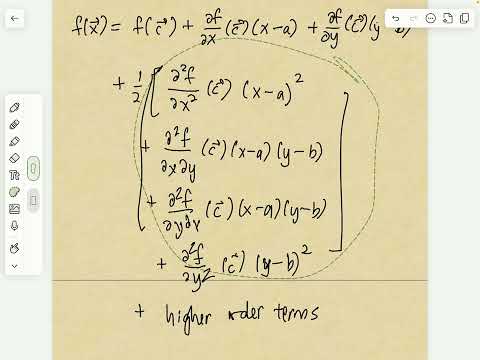 f(x⃗) = f(c⃗) + ∂f/∂x (c⃗) (x-a) + ∂f/∂y (c⃗) (y-b)
+ 1/2 [ ∂²f/∂x² (c⃗) (x-a)²
+ ∂²f/∂x∂y (c⃗) (x-a) (y-b)
+ ∂²f/∂y∂x (c⃗) (x-a) (y-b)
+ ∂²f/∂y² (c⃗) (y-b)² ]
+ higher order terms